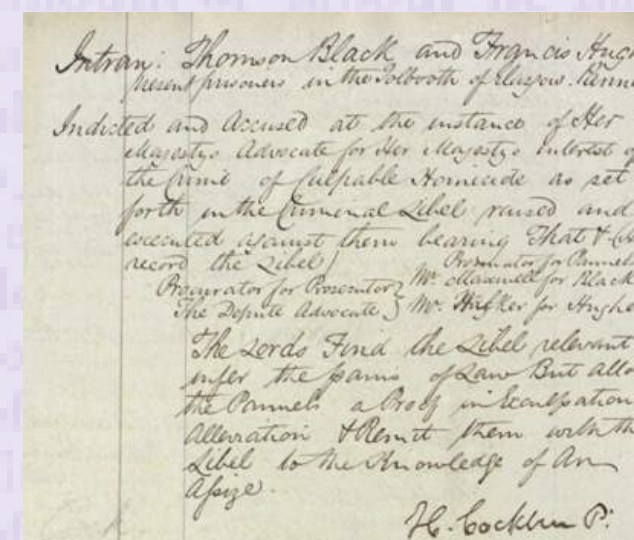 Intran: Thomson Black and Francis Hugh
present prisoners in the Tolbooth of Glasgow. Panne
Indicted and Accused at the instance of Her
Majestys Advocate for Her Majestys interest of
the Crime of Culpable Homicide as set
forth in the Criminal Libel raised and
executed against them bearing That &
record the Libel)
Procurator for Pannels
Procurator for Prosecutor} Mr. Maxwell for Black
The Depute Advocate} Mr. for Hughe
The Lords Find the Libel relevant
infer the pains of Law But allo
the Pannels a Proof in Exculpation
Alleviation & Remit them with th
Libel to the Knowledge of An
Assize.
H. Cockburn P.